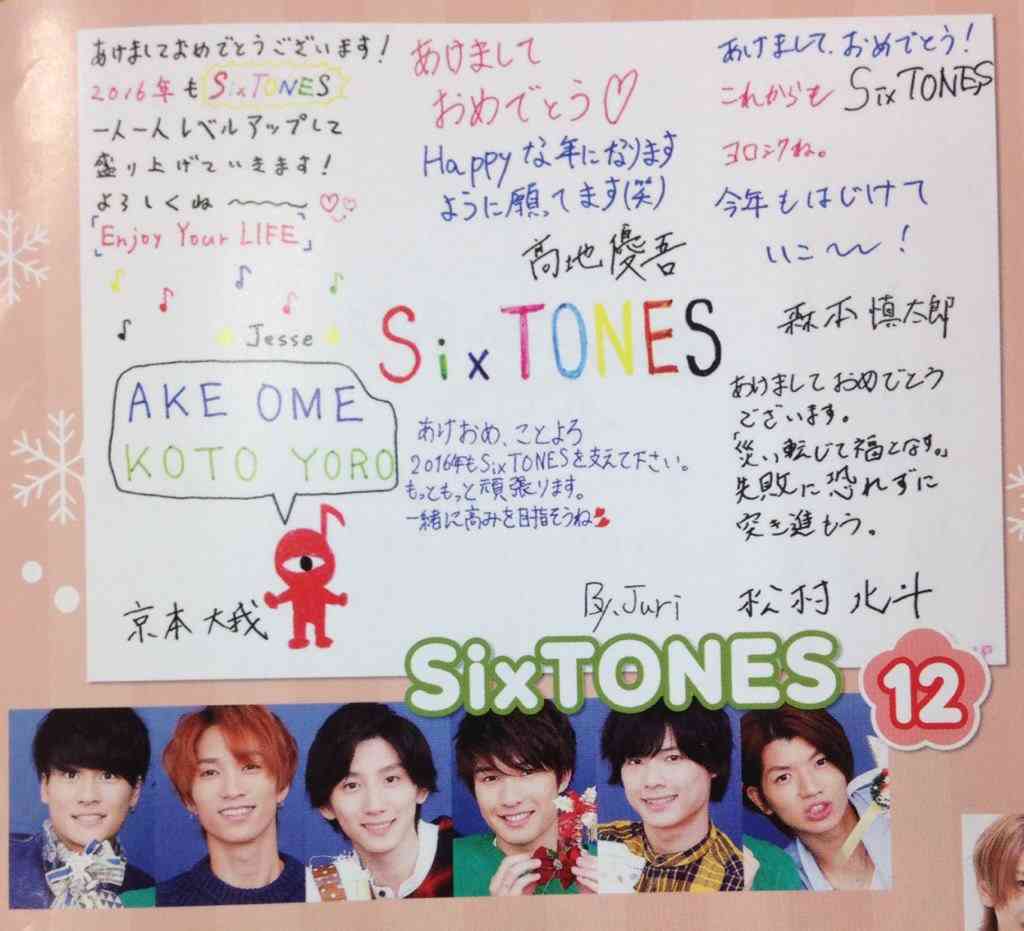 あけましておめでとうございます!
2016年も SixTONES
一人一人レベルアップして
盛り上げていきます!
よろしくね 〜〜〜 ♡♡
「Enjoy Your LIFE」
Jesse
あけまして
おめでとう♡
Happyな年になります
ように願ってます(笑)
髙地優吾
あけまして、おめでとう!
これからも SixTONES
ヨロシクね。
今年もはじけて
いこ〜〜!
森本慎太郎
SixTONES
AKE OME
KOTO YORO
京本大我
あけおめ、ことよろ
2016年もSixTONESを支えて下さい。
もっともっと頑張ります。
一緒に高みを目指そうね
By.Juri
あけましておめでとう
ございます。
「災い転じて福となす。」
失敗に恐れずに
突き進もう。
松村北斗
SixTONES
12